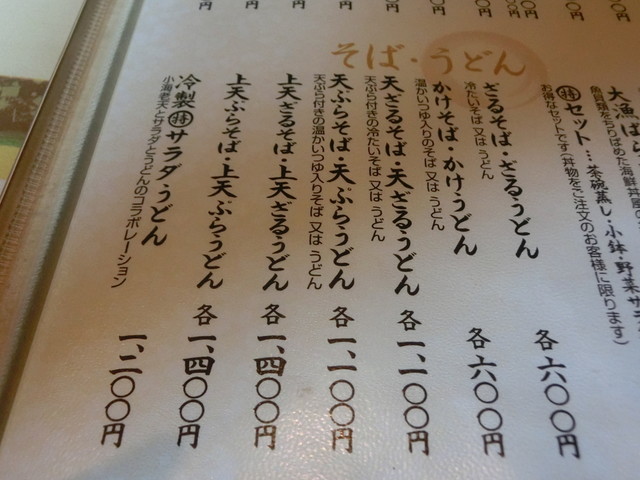 大漁ばら
魚貝類をちりばめた海鮮
㊕セット…茶碗蒸し・小鉢・野菜サラ
お得なセットです(丼物をご注文のお客様に限ります)
そば・うどん
ざるそば・ざるうどん 各六〇〇円
冷たいそば又はうどん
かけそば・かけうどん 各六〇〇円
温かいつゆ入りのそば又はうどん
天ざるそば・天ざるうどん 各一、一〇〇円
天ぷら付きの冷たいそば又はうどん
天ぷらそば・天ぷらうどん 各一、一〇〇円
天ぷら付きの温かいつゆ入りそば又はうどん
上天ざるそば・上天ざるうどん 各一、四〇〇円
上天ぷらそば・上天ぷらうどん 各一、四〇〇円
冷製㊕サラダうどん 一、二〇〇円
小海老天とサラダとうどんのコラボレーション